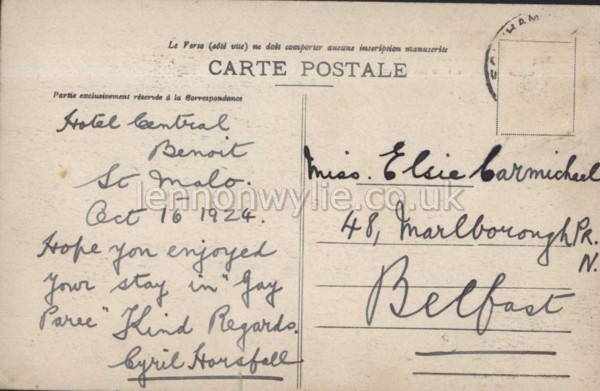 Le Verso (côté vue) ne doit comporter aucune inscription manuscrite
CARTE POSTALE
Partie exclusivement réservée à la Correspondance
Hotel Central
Benoit
St Malo.
Oct 16 1924.
Hope you enjoyed
your stay in "Gay
Paree" Kind Regards.
Cyril Horsfall
Miss. Elsie Carmichael
48, Marlborough Pk.
N.
Belfast
lennonwylie.co.uk